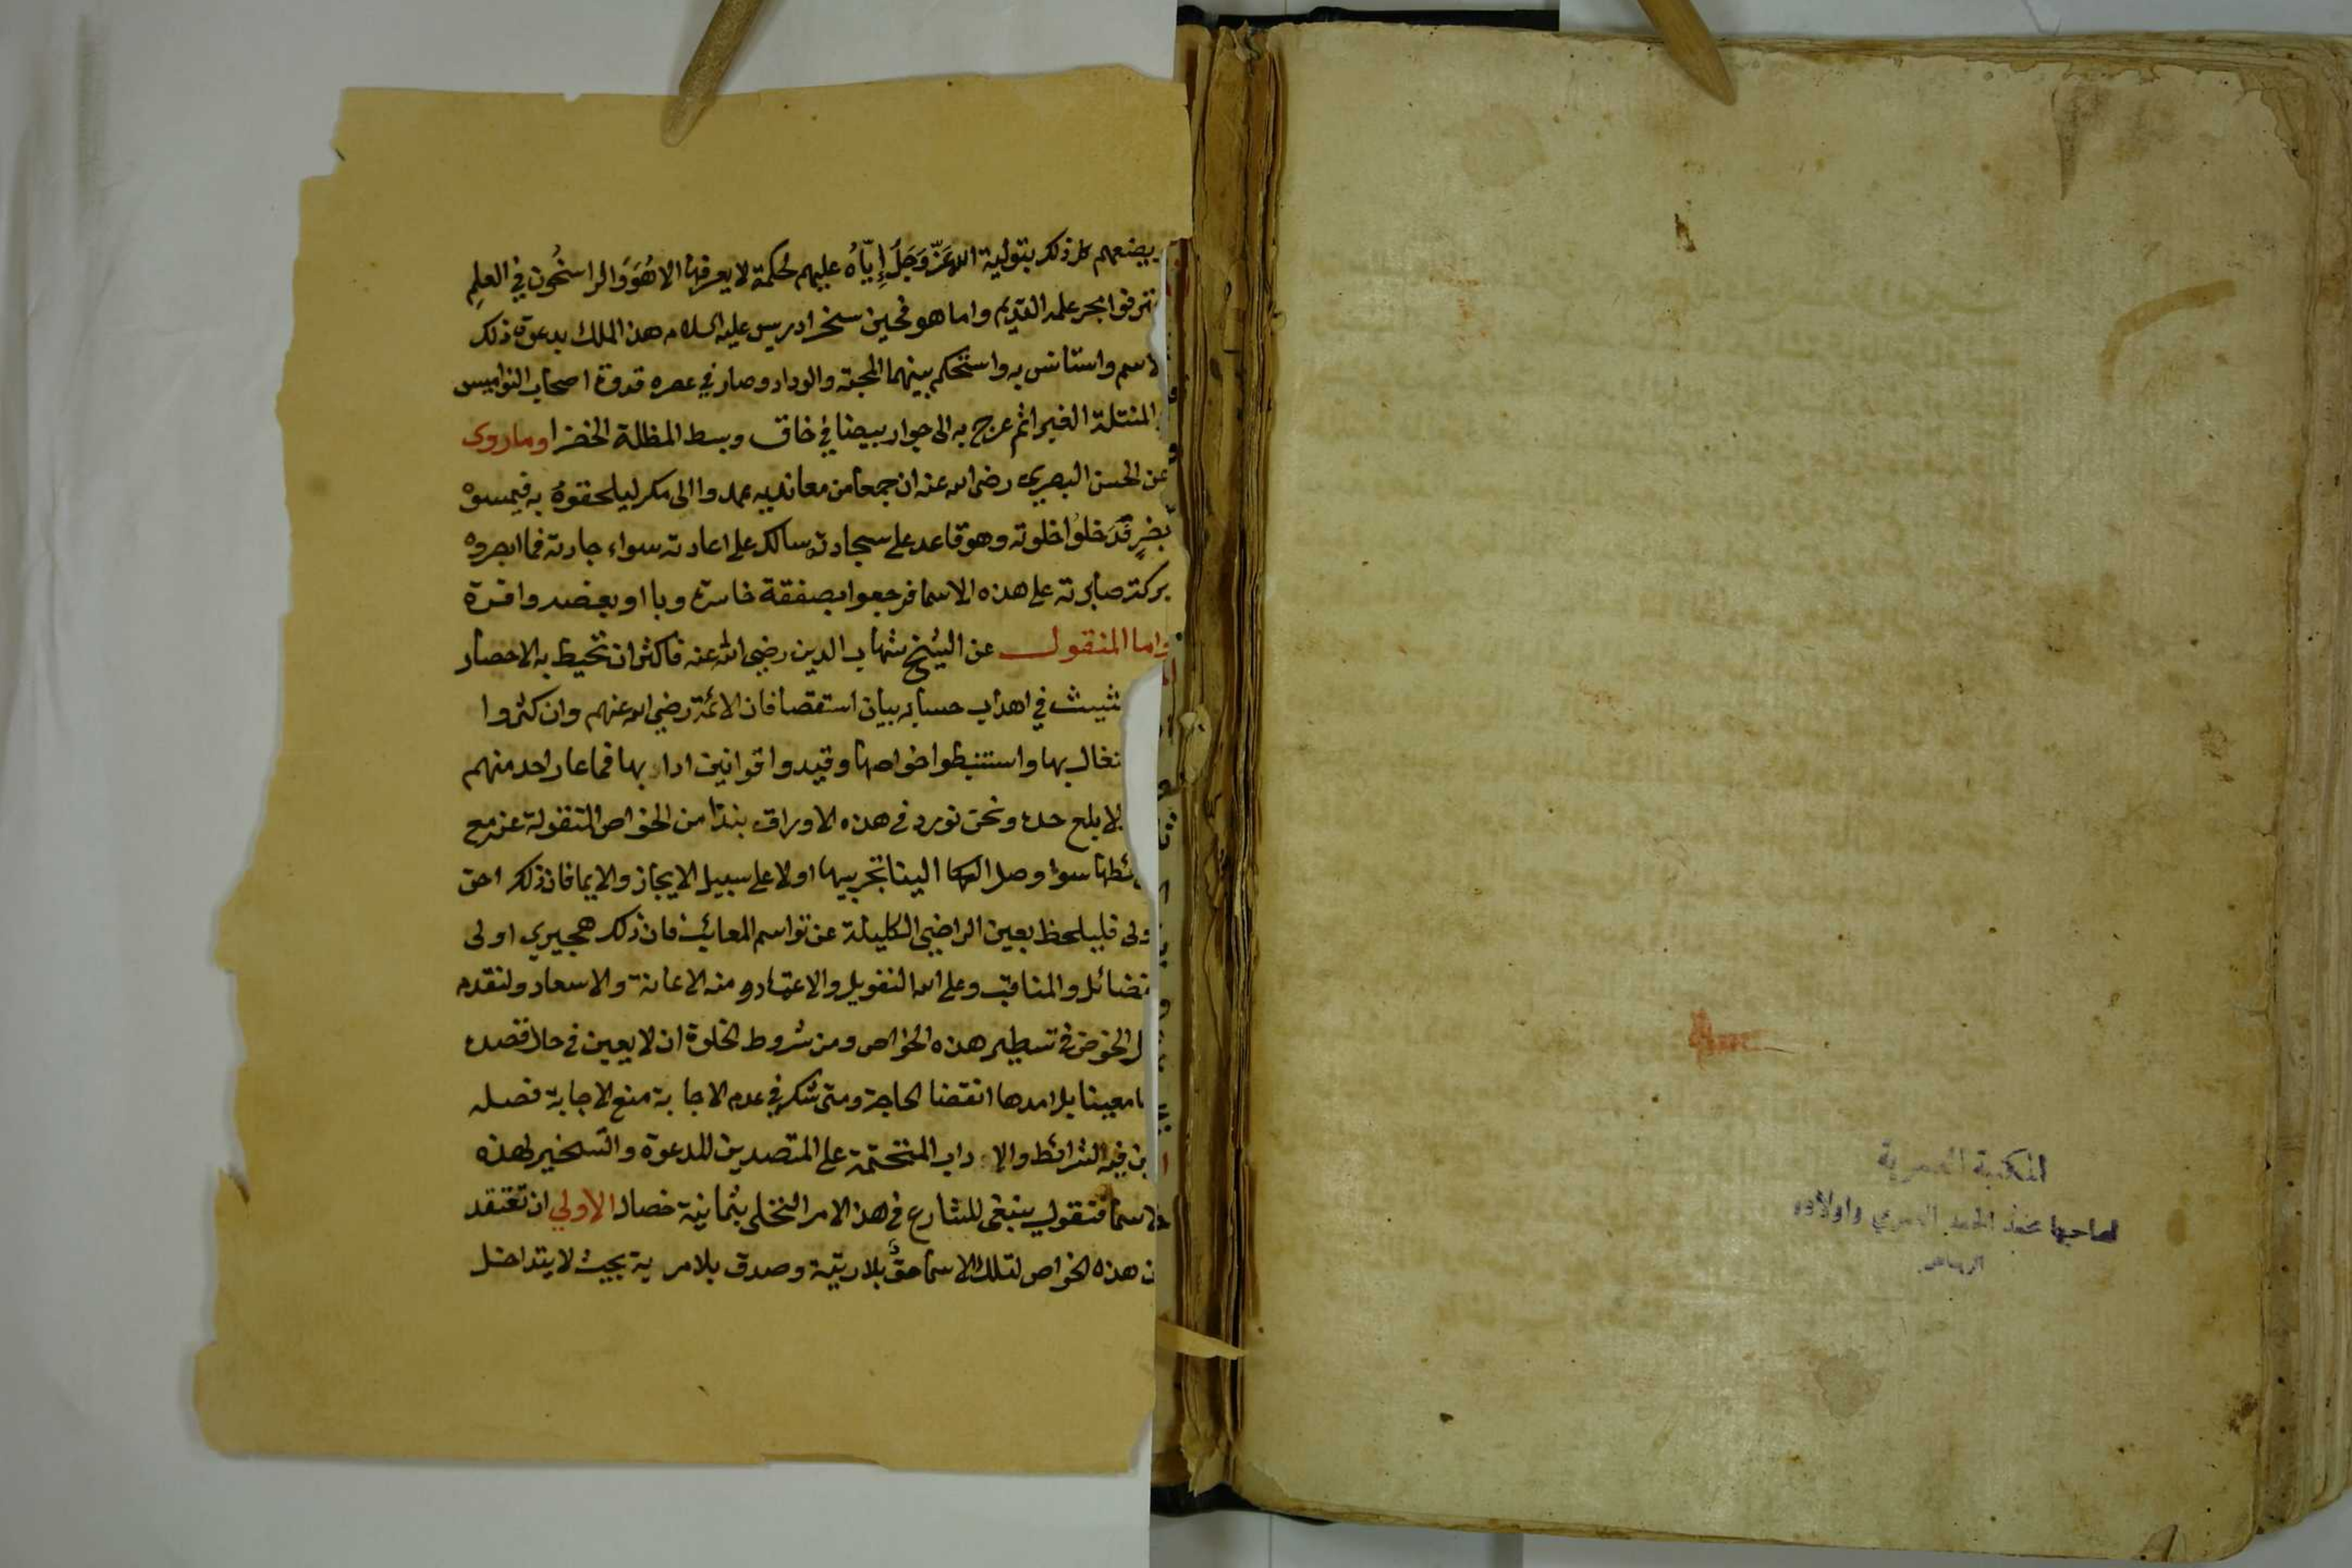 بيضعهم كل ذلك بتولية الله عَزّ وَجَلّ إِيّاهُ عليهم لحكمة لا يعرفها الا هُوَ وَالراسخُون في العلِم
بحر علمه القديم واما هو فحين سخر ادريس عليه السلام هذا الملك بدعوة ذلك
لاسم واستانس به واستحكم بينهما المحبة والوداد وصار في عصره قدوة اصحاب النواميس
ثم عرج به الى جوار بيضا في خاق وبسط المظلة الخضرا وما روى
عن الحسن البصري رضى الله عنه ان جمعا من معانديه عمدوا الى مكر ليلحقوهُ به فيمسوه
بضرٍ قَدَ خلوُا خلوته وهو قاعد على سجادته سالك على اعادته سواء جادته فما ابصروه
بركة صابرته على هذه الاسما فرجعوا بصفقة خاسرة وباا وبغضه وافرة
واما المنقول عن الشيخ شهاب الدين رضي الله عنه فاكثر ان تحيط به الاحصار
في اهداب حسابه بيان استقصا فان الائمة رضي الله عنهم وان كثروا
بها واستنبطوا خواصها وقيدوا قوانين اداربها فما عاد احد منهم
لا بلغ حده ونحن نورد في هذه الاوراق بنذا من الخواص المنقولة عنه مع
سوا وصل الينا تجريبها اولا على سبيل الايجاز والايما فان ذلك احق
ولى فليلحظ بعين الراضي الكليلة عن تواسم المعائب فان ذلك هجيري اولى
والمناقب وعلى الله التفويل والاعتماد ومنه الاعانة والاسعاد ولنقدم
الخوض في تسطير هذه الخواص ومن شروط الخلوة ان لا يعين في حال قصده
معينا بل امدها انقضا الحاجة ومتى شكر في عدم الاجابة منع الاجابة فصله
فيه الشرائط والاداب المنتحتمة على المتصدين للدعوة والتسخير لهذه
الاسما فنقول ينبغى للشارع في هذا الامر التخلى بثمانية خصال الاولي ان تعتقد
ن هذه الخواص لتلك الاسما حقٌ بلا ريبة وصدق بلا مرية بحيث لا يتداخل
المكتبة العمرية
لصاحبها محمد الحمد العمري واولاده
الرياض